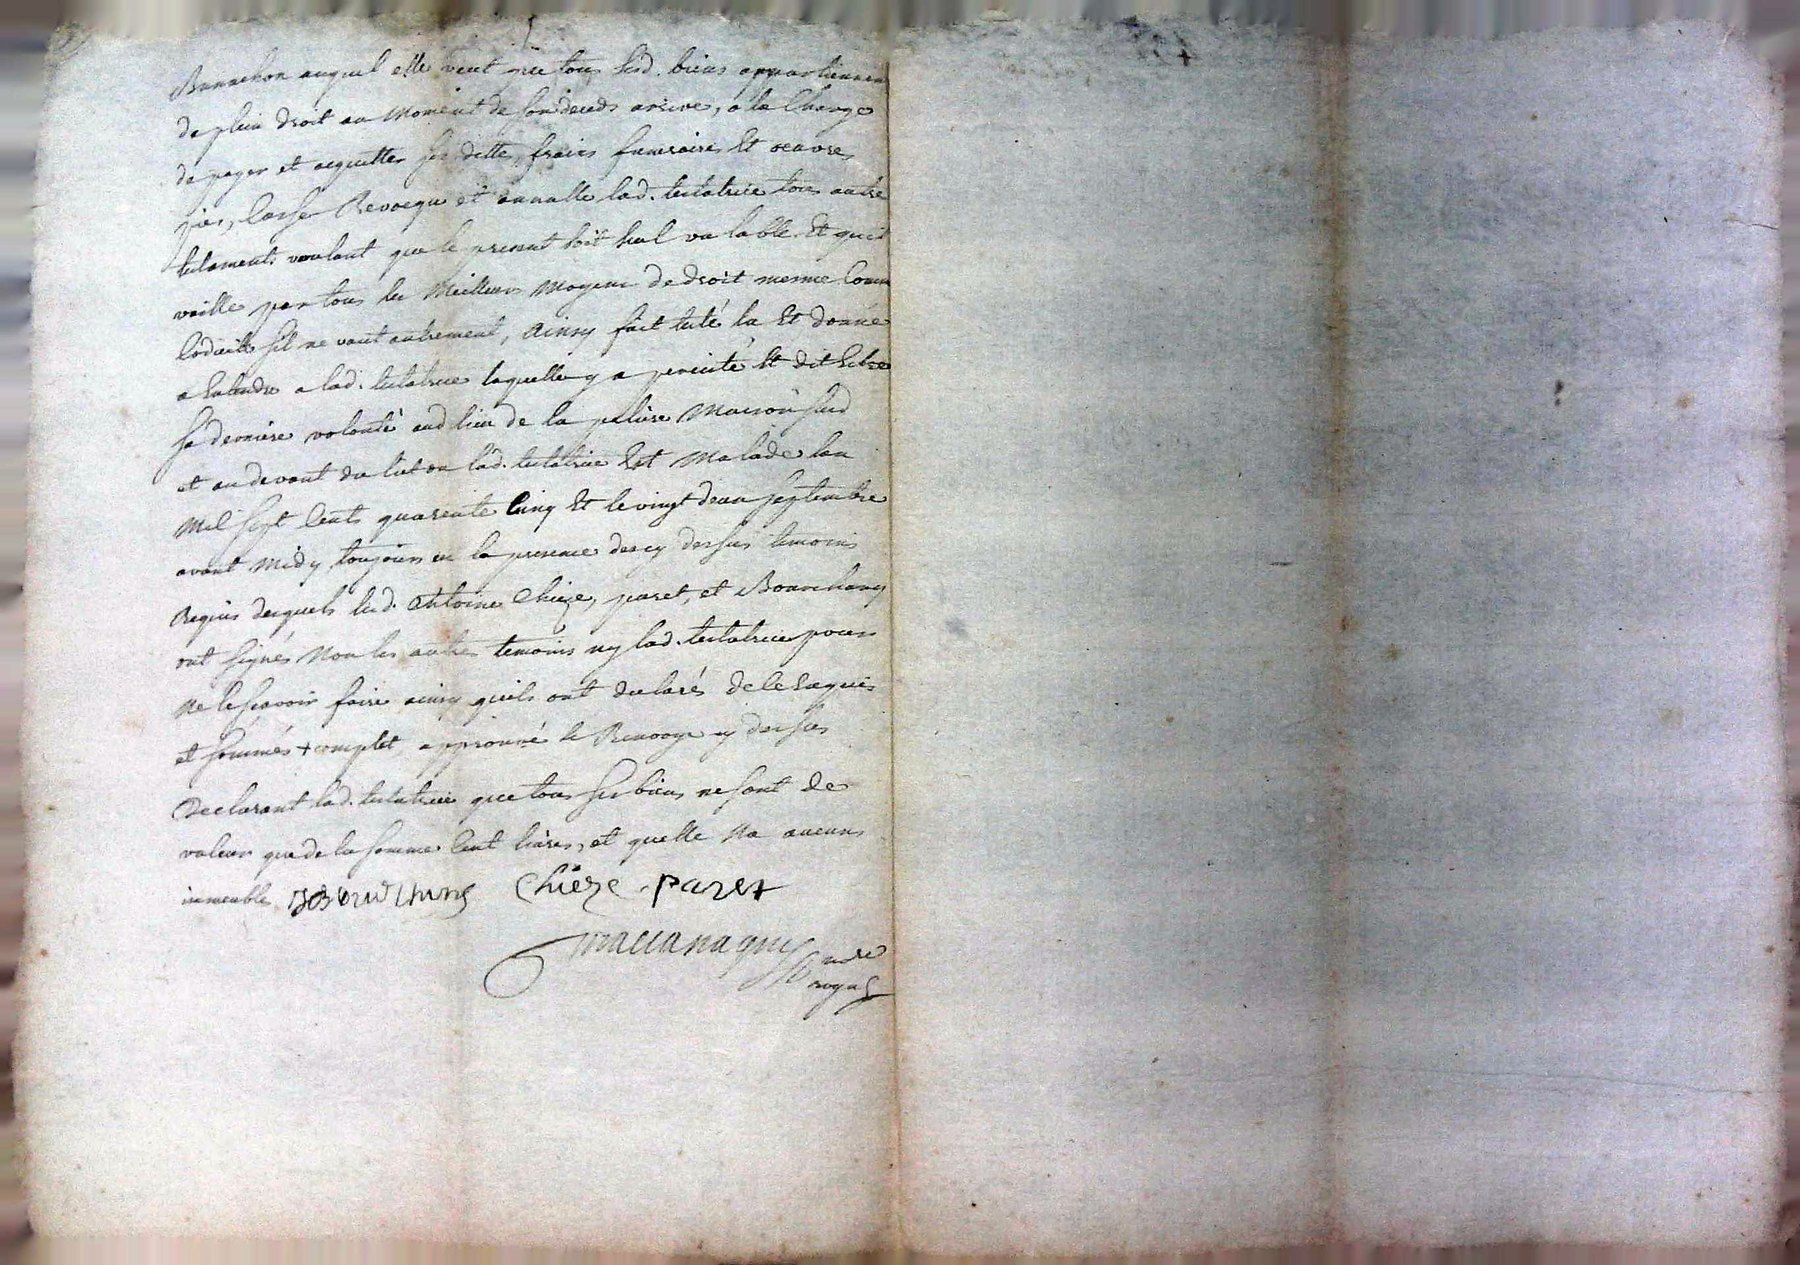 Bonnechon auquel elle veut que tous sesd. biens appartiennent
de plein droit au moment de son deceds arrive, a la charge
de payer et acquitter ses dettes, fraics funeraires et oeuvres
pies, Casse Revocque et annulle lad. testatrice tous autres
testaments voulant que le present soit seul valable et quil
vaille par tous les meilleurs moyens de droit mesme comme
codicille sil ne vaut autrement, ainsy fait testé lu et donné
a entendre a lad. testatrice laquelle y a persisté et dit estre
sa derniere volonté aud. lieu de la maison sud
et au devant du lit ou lad. testatrice est malade lan
mil sept cents quarente cinq et le vingt deux septembre
avant midy toujours en la presence des cy dessus temoins
requis desquels led. Antoine Chieze, paret, et
ont signés non les autres temoins ny lad. testatrice pour
ne le scavoir faire ainsy quils ont declarés de ce enquis
et sommés + complet, approuvé le Renvoye cy dessus
declarant lad. testatrice que tous ses biens ne sont de
valeur que de la somme cent livres, et quelle na aucuns
immeuble Chieze paret
nore
royal